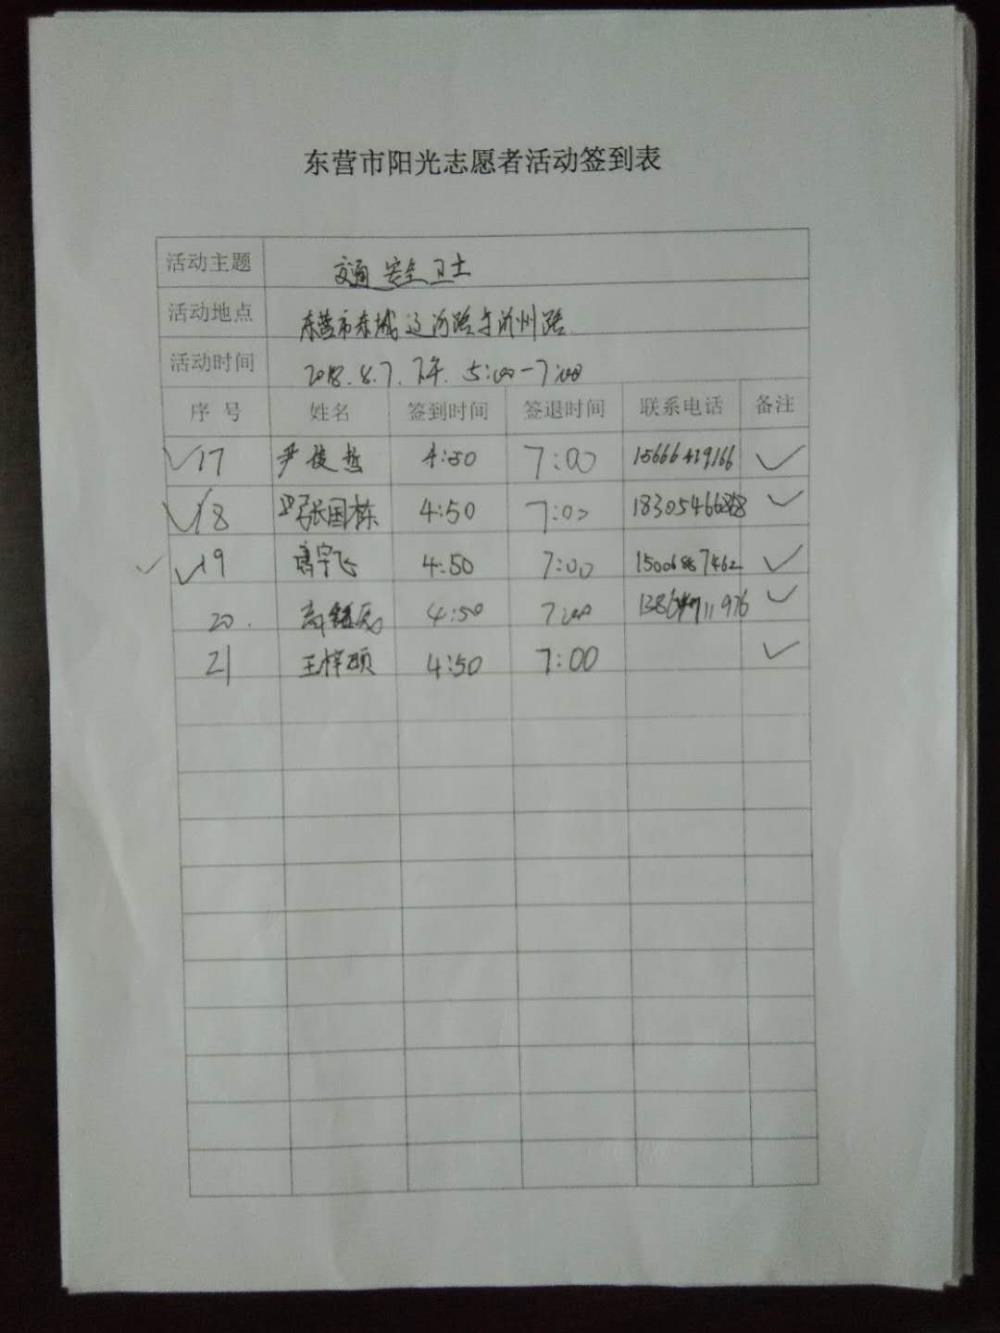 东营市阳光志愿者活动签到表
活动主题 交通安全卫士
活动地点 东营市东城辽河路与沂州路
活动时间 2018.8.7.下午.5:00-7:00
序号 姓名 签到时间 签退时间 联系电话 备注
✓17 尹俊哲 4:50 7:00 15666419166 ✓
✓18 张国栋 4:50 7:00 ✓
✓ ✓19 高宇飞 4:50 7:00 15006887462 ✓
20. 高 4:50 7:00 ✓
21 王梓颐 4:50 7:00 ✓